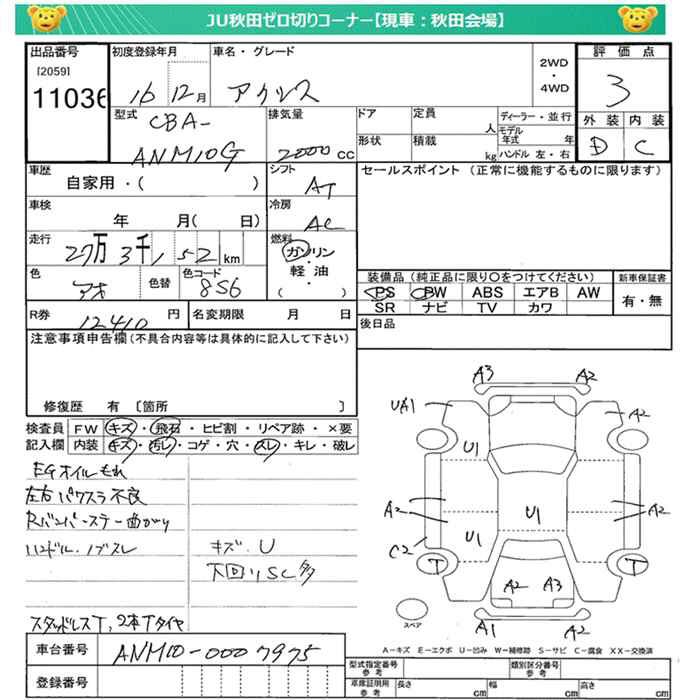 JU秋田ゼロ切りコーナー【現車：秋田会場】
出品番号 初度登録年月 車名・グレード 2WD・4WD 評価点
[2059]
11036 16 12月 アクシス 3
型式 排気量 ドア 定員 人 ディーラー・並行 外装 内装
CBA- 形状 積載 kg モデル年式 年 D C
ANM10G 2000CC ハンドル 左・右
車歴 シフト セールスポイント (正常に機能するものに限ります)
自家用・( ) AT
車検 冷房
年 月( 日) AC
走行 燃料
27万3千152km ガソリン・軽油・( )
色 色替 色コード 装備品 (純正品に限り〇をつけてください) 新車保証書
アオ 856 PS PW ABS エアB AW 有・無
SR ナビ TV カワ
R券 12410円 名変期限 月 日 後日品
注意事項申告欄(不具合内容等は具体的に記入して下さい)
修復歴 有 〔箇所 〕
検査員記入欄 FW キズ・飛石・ヒビ割・リペア跡・×要
内装 キズ・汚レ・コゲ・穴・スレ・キレ・破レ
EGオイルもれ
左右パワスラ不良
Rバンパーステー曲がり
ハンドル・ノブスレ キズ・U
下回りSC多
スタッドレスT,2本Tタイヤ
A3 A2
UA1 A2
U1
A2 U1 A2
C2 U1
T T
A2 A3
スペア A1 A2
A-キズ E-エクボ U-凹み W-補修跡 S-サビ C-腐食 XX-交換済
車台番号 ANM10-0007975
登録番号
型式指定番号 参考 類別区分番号 参考
車庫証明用 参考 長さ cm 幅 cm 高さ cm